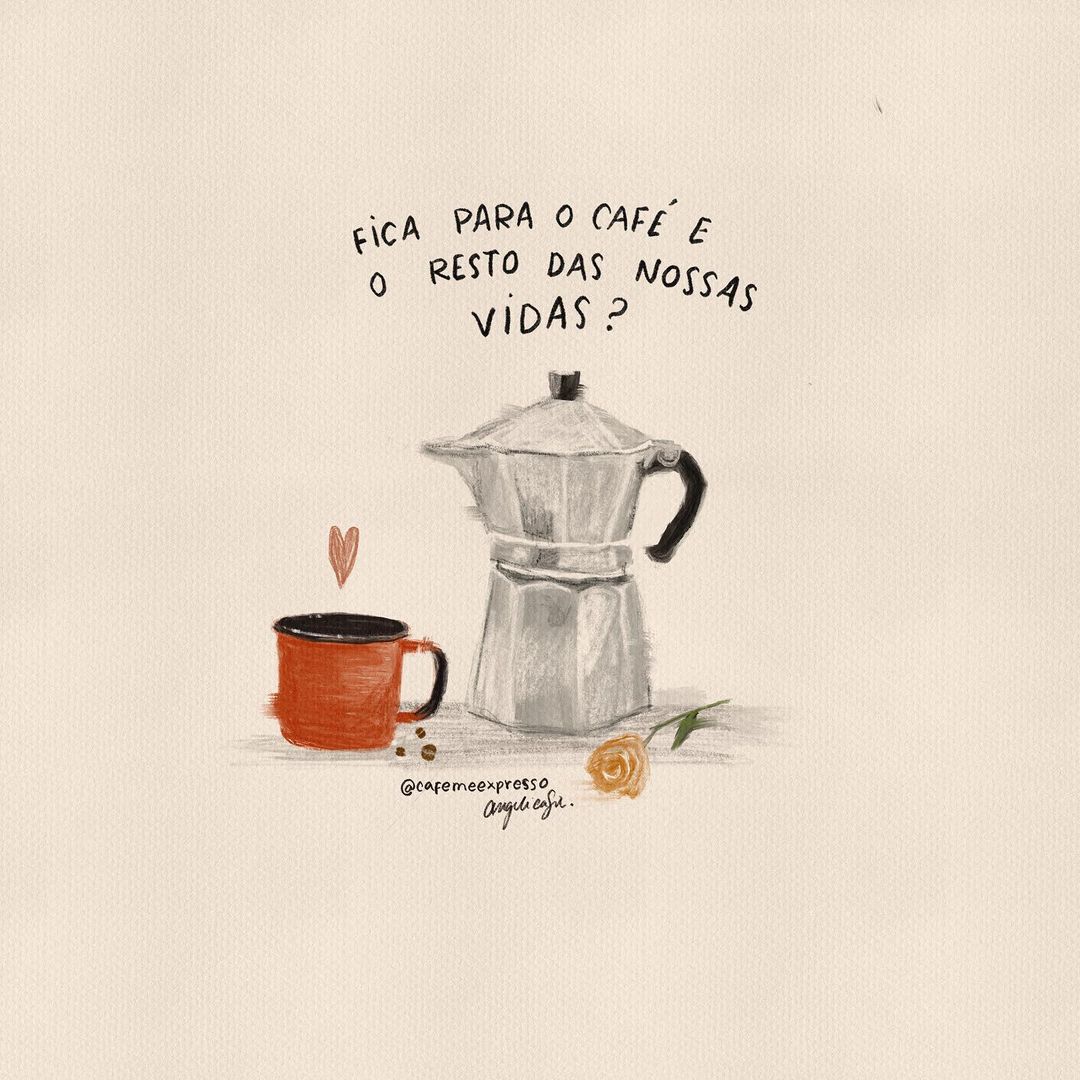 FICA PARA O CAFÉ E
O RESTO DAS NOSSAS
VIDAS?
@cafemeexpresso